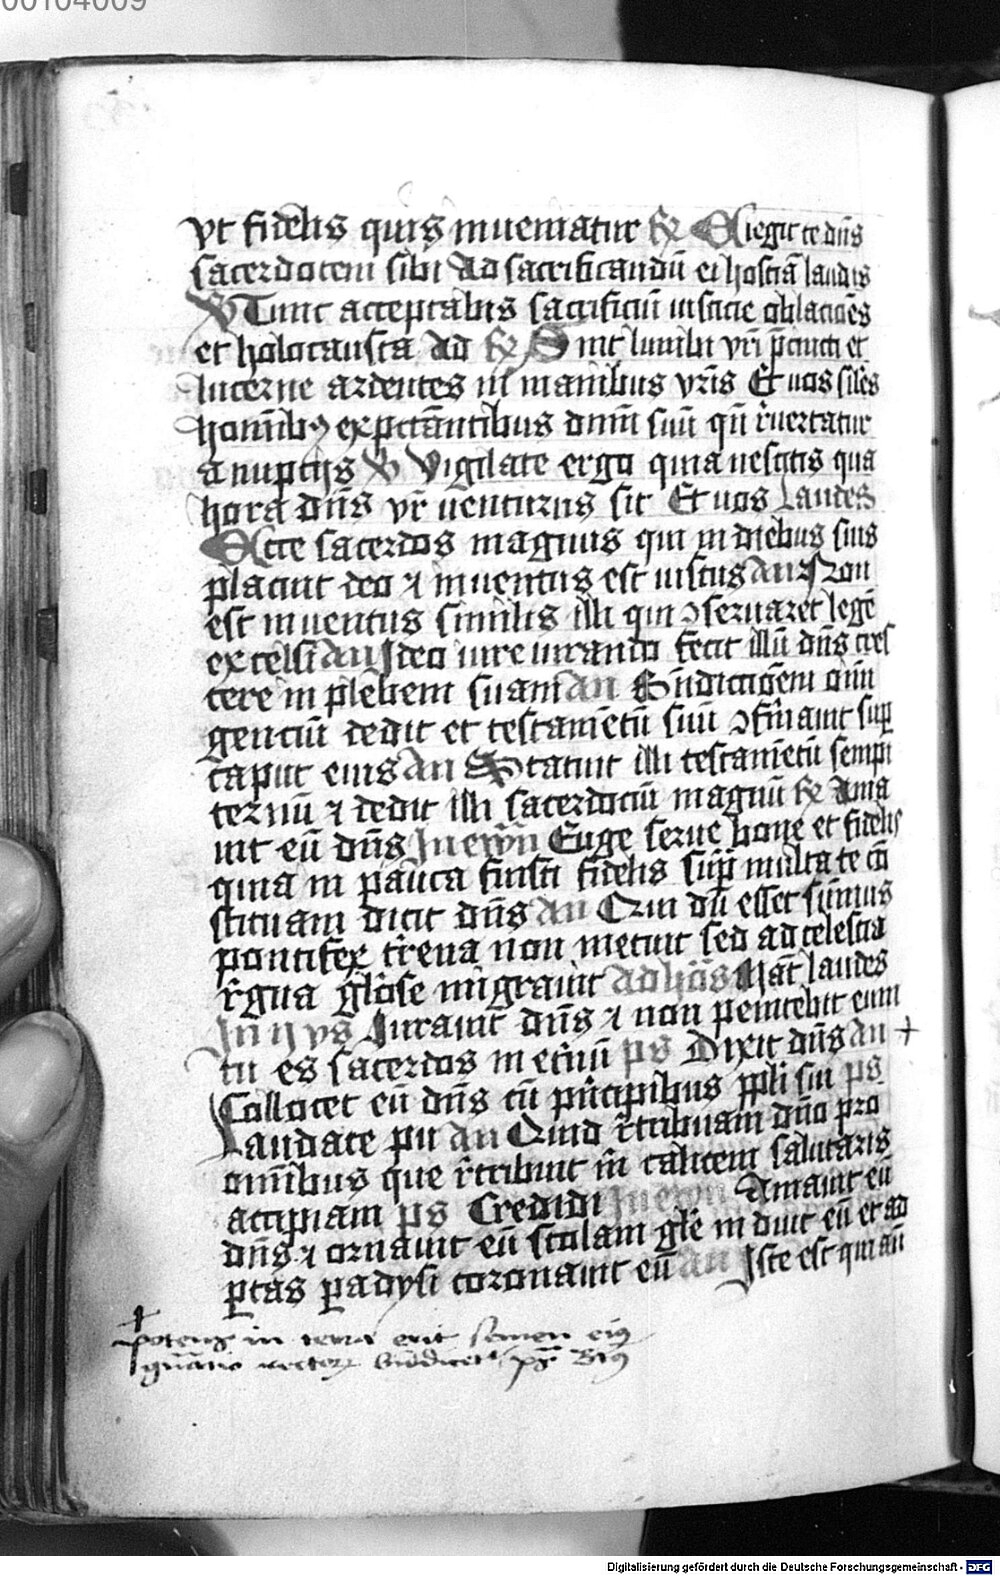 00104009
vt fidelis quis inueniatur R Elegit te dns
sacerdotem sibi Ad sacrificandu ei hostia laudis
V Tunc acceptabis sacrificiu iusticie oblacioes
et holocausta Ad R Sint lumbi vri pcincti et
lucerne ardentes in manibus vris Et uos siles
hominib9 expectantibus dnm suu qn reuertatur
a nuptijs V Vigilate ergo quia nescitis qua
hora dns vr uenturus sit Et uos Laudes
Ecce sacerdos magnus qui in diebus suis
placuit deo & inuentus est iustus An Non
est inuentus similis illi qui ɔseruaret lege
excelsi An Ideo iure iurando fecit illu dns cres
cere in plebem suam An Bndictioem oim
genciu dedit et testametu suu ɔfirmauit sup
caput eius An Statuit illi testametu sempi
ternu & dedit illi sacerdociu magnu R Ama
uit eu dns In ewn Euge serue bone et fidelis
quia in pauca fuisti fidelis supr multa te cn
stituam dicit dns An Qui du esset summus
pontifex trena non metuit sed ad celestia
regna gliose migrauit ad hoas Nat laudes
In ij vs Iurauit dns & non penitebit eum
tu es sacerdos in eternu ps Dixit dns An +
Collocet eu dns cu principibus ppli sui ps
Laudate pu an Quid retribuam dno pro
omnibus que retribuit m calicem salutaris
accipiam ps Credidi In ewn Amauit eu
dns & ornauit eu stolam gle induit eu et ad
ptas padysi coronauit eu an Iste est qui an
+
potens in terra erit semen ei9
gnatio rector bndicet ps Bts
Digitalisierung gefördert durch die Deutsche Forschungsgemeinschaft - DFG